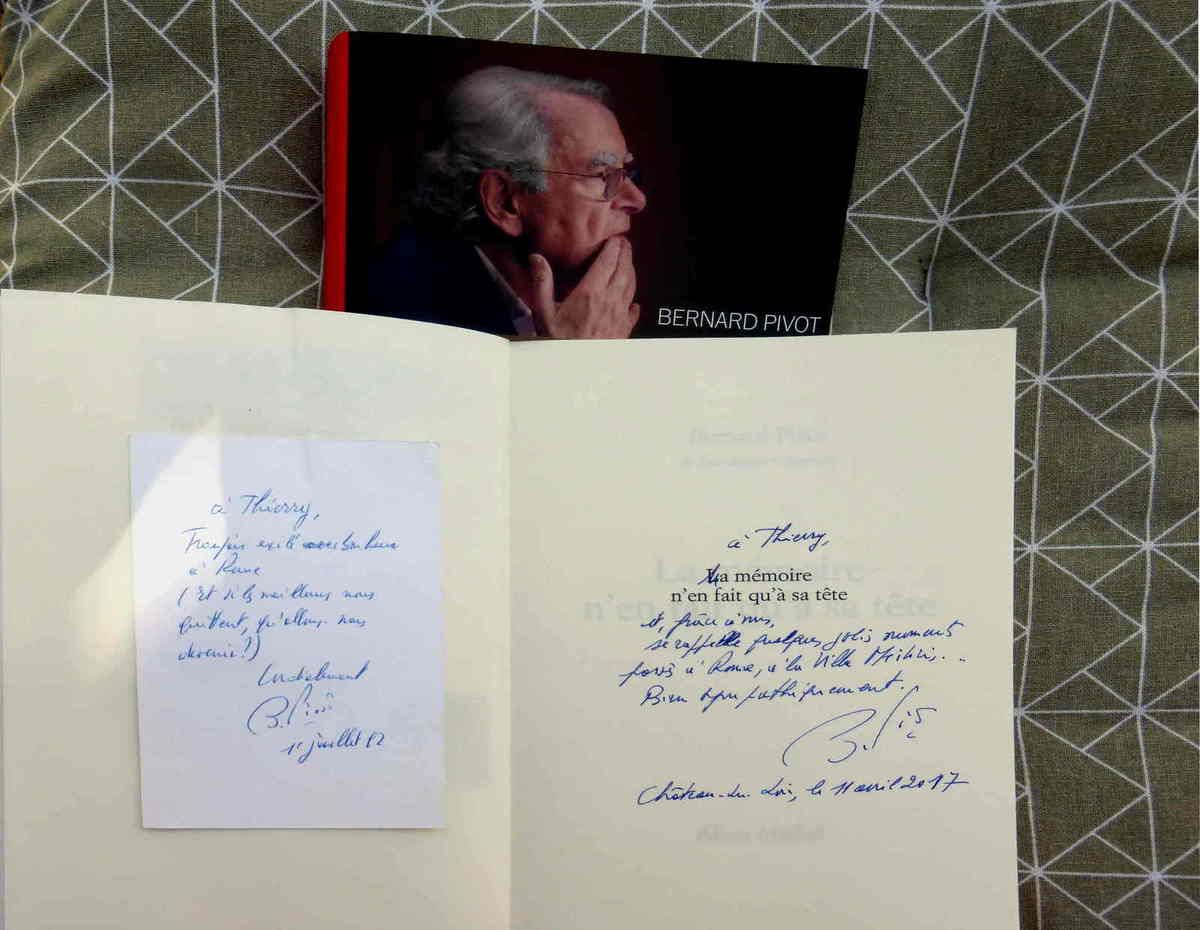 BERNARD PIVOT
à Thierry,
Français exilé avec bonheur
à Rome
(Et si les meilleurs nous
quittent, qu'allons-nous
devenir ?)
Cordialement
B. Pivot
1er juillet 82
Bernard Pivot
de l'Académie Goncourt
à Thierry,
La mémoire
n'en fait qu'à sa tête
et, grâce à vous,
se rappelle quelques jolis moments
passés à Rome, à la Villa Médicis...
Bien sympathiquement.
B. Pivot
Château-du-Loir, le 11 avril 2017
La mémoire
n'en fait qu'à sa tête
Albin Michel